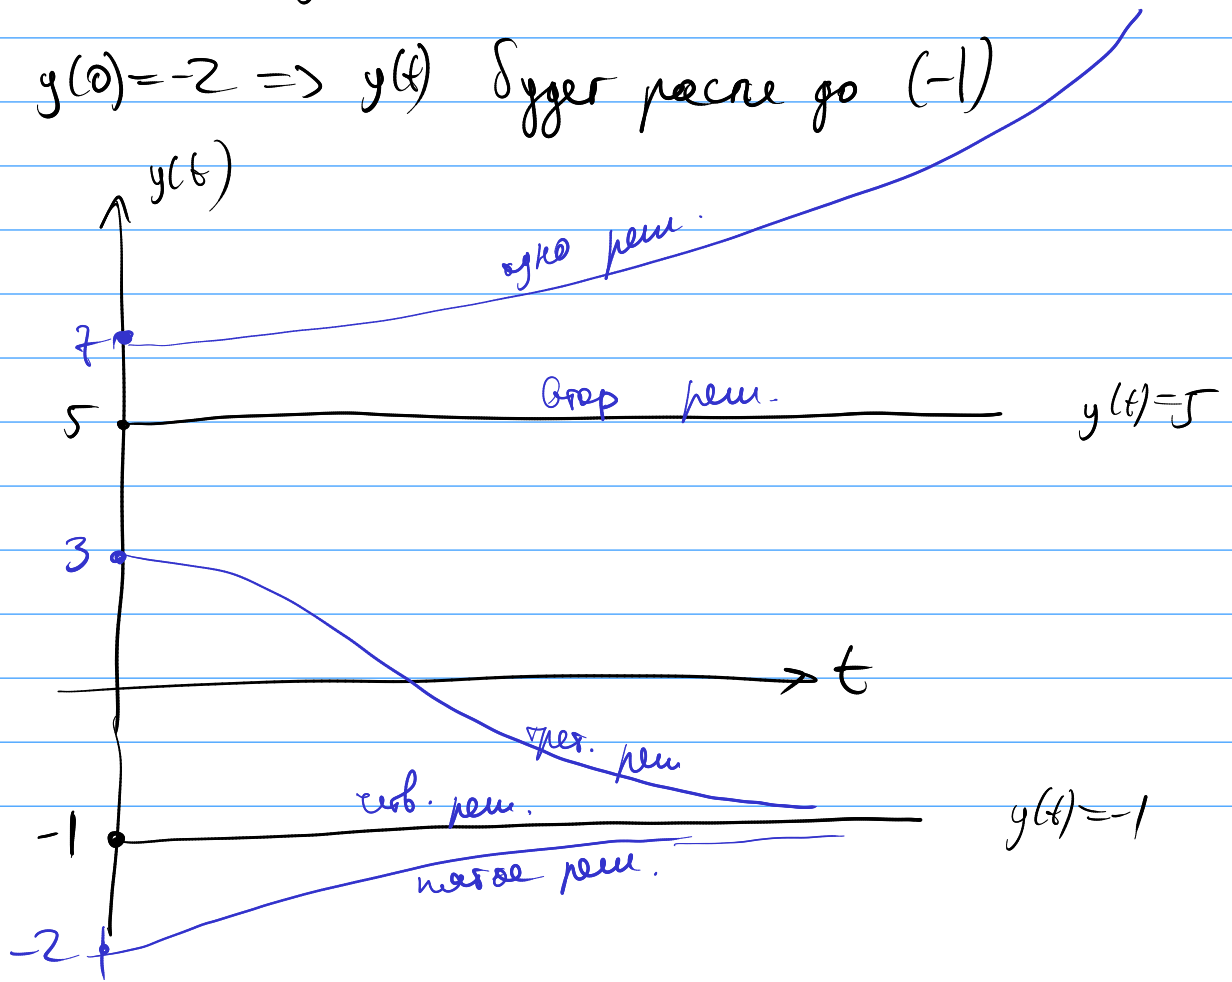 y(0)=-2 => y(t) будет расти до (-1)
y(t)
одно реш.
7
5
втор реш.
y(t)=5
3
t
трет. реш
четв. реш.
-1
y(t)=-1
пятое реш.
-2